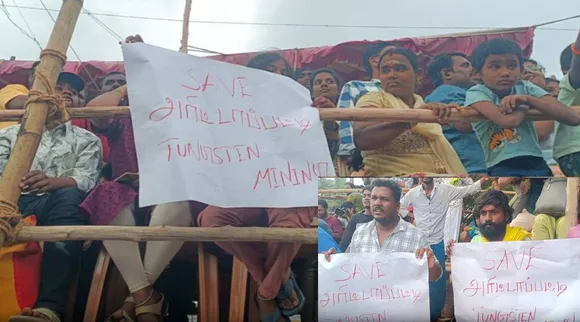 SAVE
அரிட்டாப்பட்டி
TUNGISTEN
MINING
SAVE
அரிட்டாப்பட்டி
SAVE
அரிட்டாப்பட்டி
TUNGISTEN